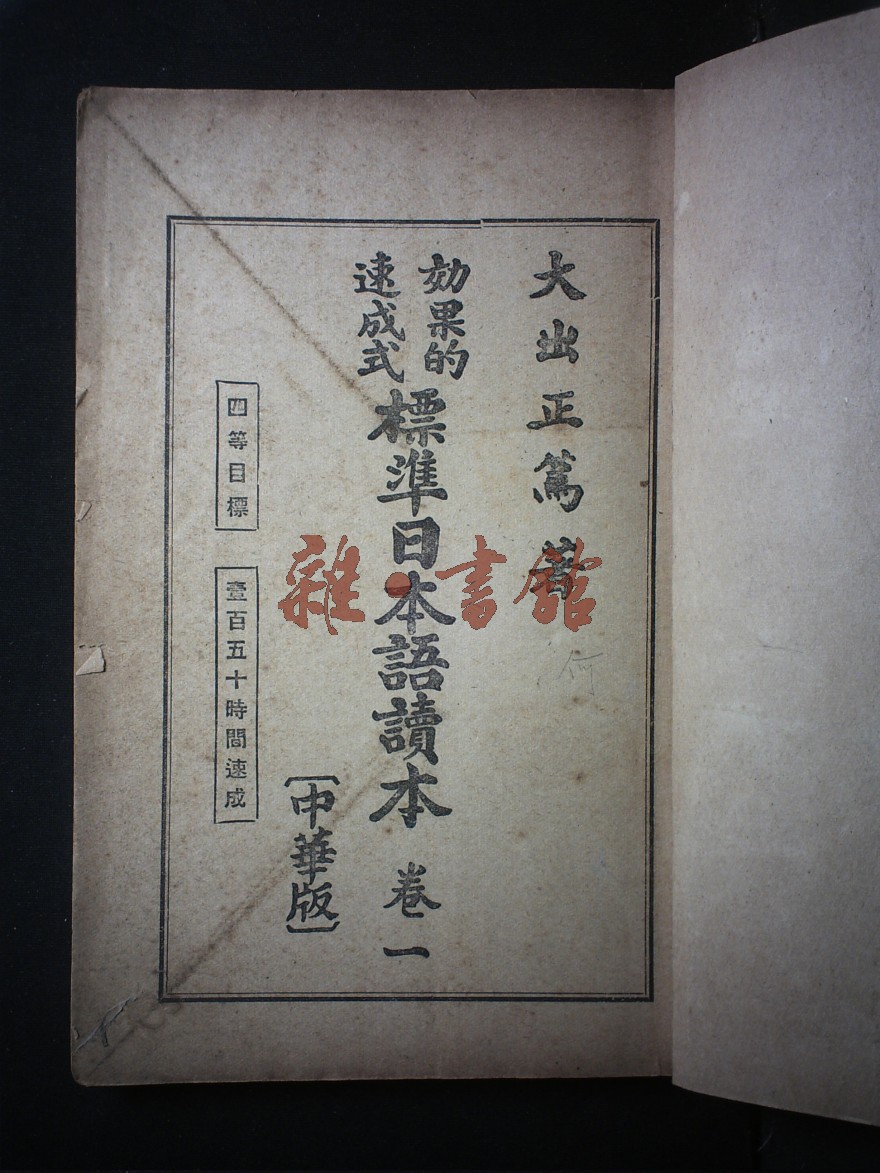 大出正篤著
効果的
速成式
標準日本語讀本 卷一
〔中華版〕
四等目標
壹百五十時間速成
雜·書館
何